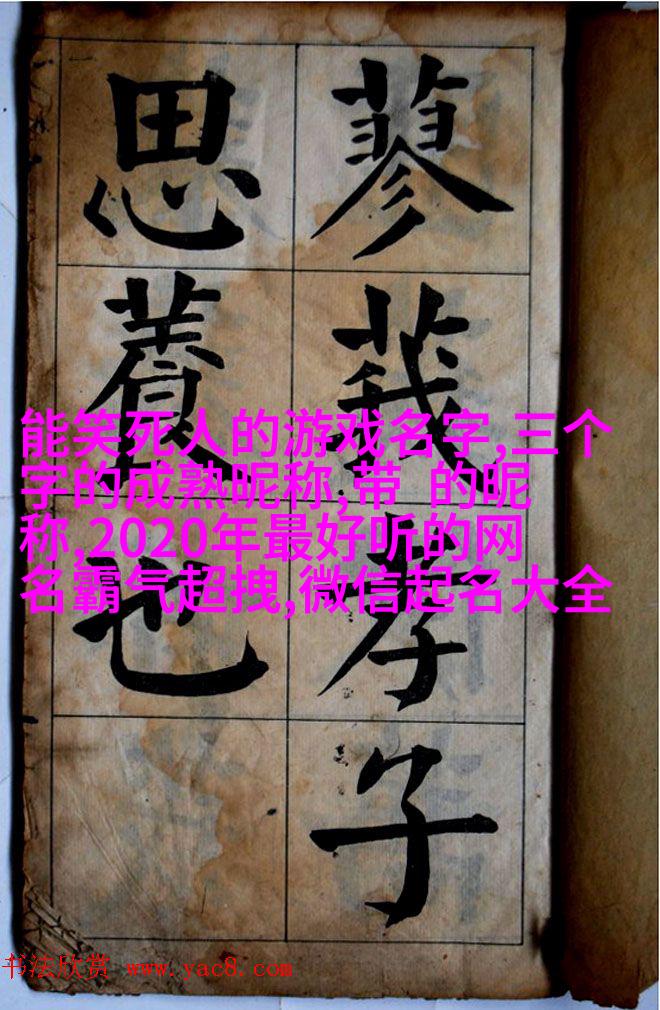 蓼莪孝子
思養也
能笑死人的游戏名字,三个
字的成熟昵称,带 的昵
称,2020年最好听的网
名霸气超拽,微信起名大全
书法欣赏 www.yac8.com